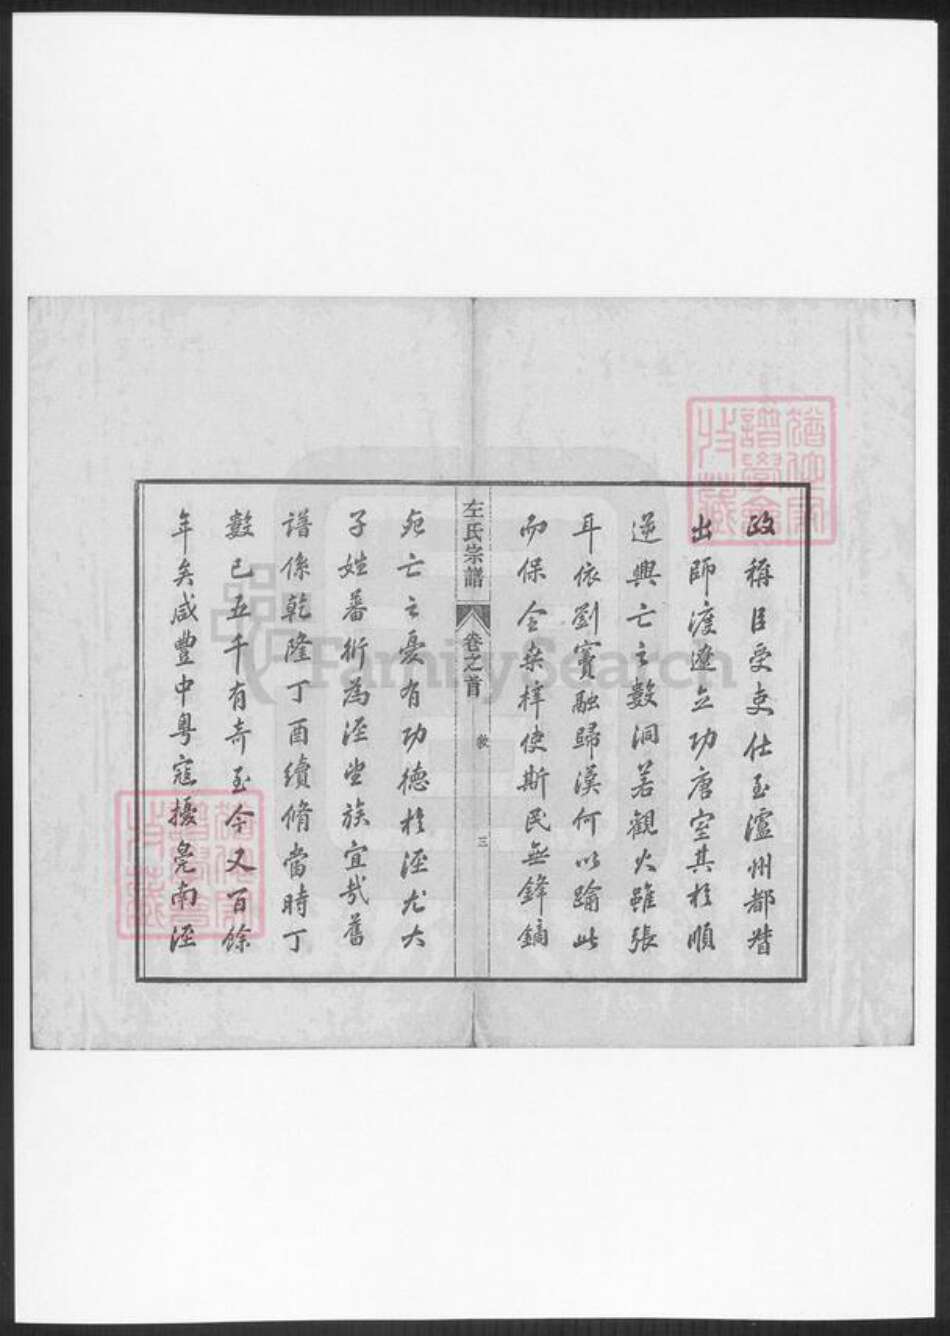 政稱臣受吏仕至瀘州都督
出師渡遼立功唐室其於順
逆興亡之數洞若觀火雖張
耳依劉竇融歸漢何以踰此
而保全桑梓使斯民無鋒鏑
左氏宗譜
卷之首
敘
三
死亡之憂有功德於涇尤大
子姓蕃衍為涇望族宜哉舊
譜係乾隆丁酉續脩當時丁
數已五千有奇至今又百餘
年矣咸豐中粵寇擾皖南涇
FamilySearch